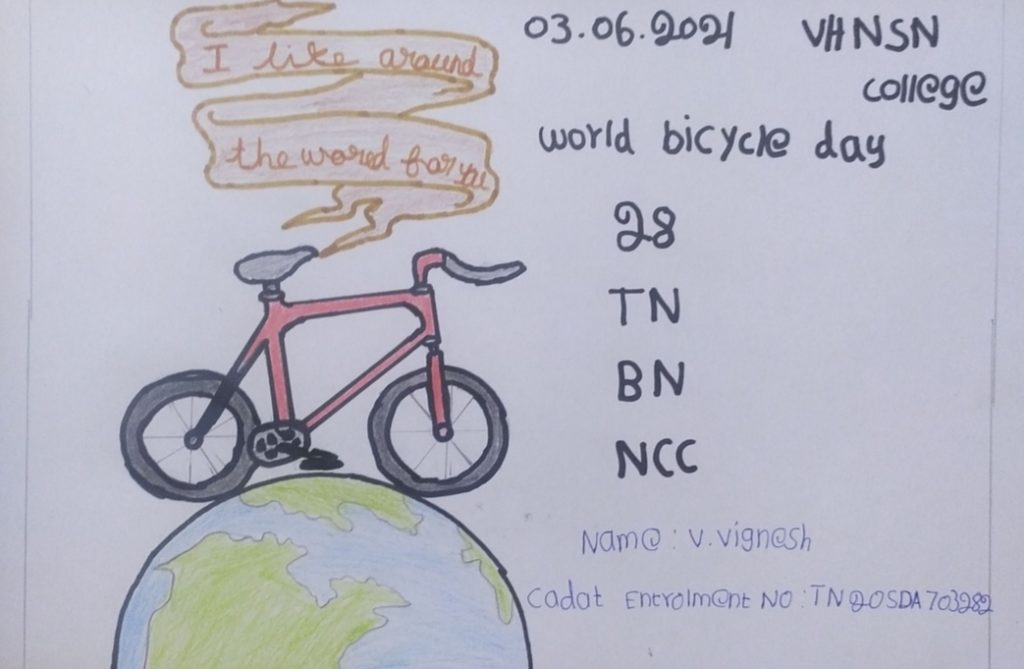 I like around
the wored for you
03.06.2021 VHNSN
college
world bicycle day
28
TN
BN
NCC
Name : V.Vignesh
Cadat Entrolment NO : TN20SDA703282